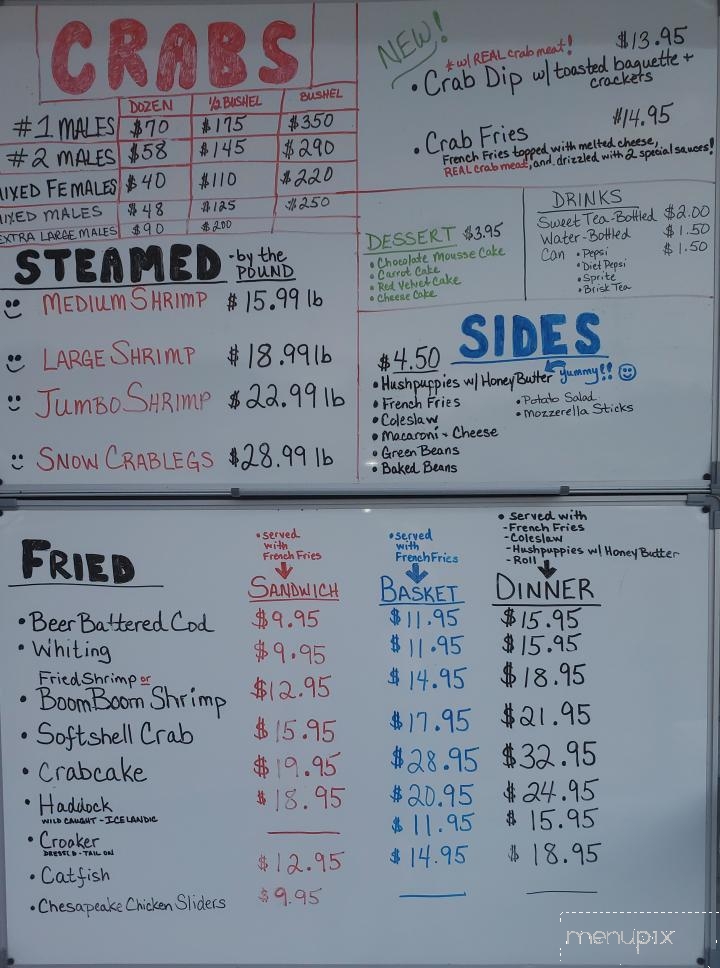 CRABS
DOZEN ½ BUSHEL BUSHEL
#1 MALES $70 $175 $350
#2 MALES $58 $145 $290
MIXED FEMALES $40 $110 $220
MIXED MALES $48 $125 $250
EXTRA LARGE MALES $90 $200
STEAMED -by the POUND
MEDIUM SHRIMP $15.99 lb
LARGE SHRIMP $18.99 lb
JUMBO SHRIMP $22.99 lb
SNOW CRABLEGS $28.99 lb
NEW!
* w/ REAL crab meat! $13.95
• Crab Dip w/ toasted baguette +
crackers
$14.95
• Crab Fries
French Fries topped with melted cheese,
REAL crab meat, and drizzled with 2 special sauces!
DESSERT $3.95
• Chocolate Mousse Cake
• Carrot Cake
• Red Velvet Cake
• Cheese Cake
DRINKS
Sweet Tea-Bottled $2.00
Water-Bottled $1.50
Can • Pepsi $1.50
• Diet Pepsi
• Sprite
• Brisk Tea
SIDES
$4.50
• Hushpuppies w/ Honey Butter yummy!!
• French Fries
• Coleslaw
• Macaroni + Cheese
• Green Beans
• Baked Beans
• Potato Salad
• Mozzerella Sticks
FRIED
• served
with
French Fries
SANDWICH
• served
with
French Fries
BASKET
• served with
- French Fries
- Coleslaw
- Hushpuppies w/ Honey Butter
- Roll
DINNER
• Beer Battered Cod $9.95 $11.95 $15.95
• Whiting $9.95 $11.95 $15.95
Fried Shrimp or
• Boom Boom Shrimp $12.95 $14.95 $18.95
• Softshell Crab $15.95 $17.95 $21.95
• Crabcake $19.95 $28.95 $32.95
• Haddock $18.95 $20.95 $24.95
WILD CAUGHT - ICELANDIC
• Croaker $11.95 $15.95
DRESSED - TAIL ON
• Catfish $12.95 $14.95 $18.95
• Chesapeake Chicken Sliders $9.95
menupix